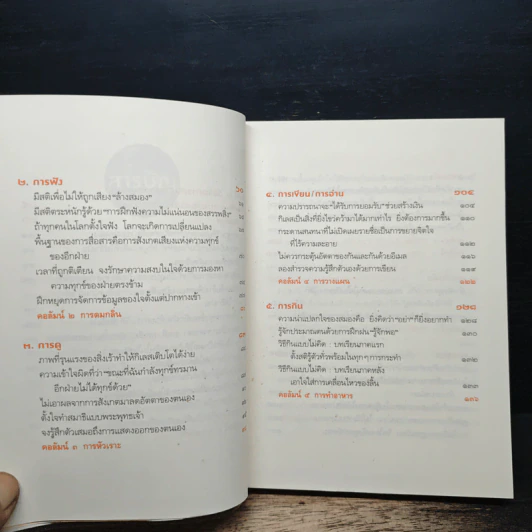 ๒. การฟัง
มีสติเพื่อไม่ให้ถูกเสียง "ล้างสมอง"
มีสติตระหนักรู้ด้วย "การฝึกฟังความไม่แน่นอนของสรรพสิ่ง"
ถ้าทุกคนในโลกตั้งใจฟัง โลกจะเกิดการเปลี่ยนแปลง
พื้นฐานของการสื่อสารคือการสังเกตเสียงแห่งความทุกข์
ของอีกฝ่าย
เวลาที่ถูกติเตียน จงรักษาความสงบในใจด้วยการมองหา
ความทุกข์ของฝ่ายตรงข้าม
ฝึกหยุดการจัดการข้อมูลของใจตั้งแต่ปากทางเข้า
คอลัมน์ ๒ การดมกลิ่น
๓. การดู
ภาพที่รุนแรงของสิ่งเร้าทำให้กิเลสเติบโตได้ง่าย
ความเข้าใจผิดที่ว่า "ขณะที่ฉันกำลังทุกข์ทรมาน
อีกฝ่ายไม่ได้ทุกข์ด้วย"
ไม่เอาผลจากการสังเกตมาลดอัตตาของตนเอง
ตั้งใจทำสมาธิแบบพระพุทธเจ้า
จงรู้สึกตัวเสมอถึงการแสดงออกของตนเอง
คอลัมน์ ๓ การหัวเราะ
๔. การเขียน/การอ่าน ๑๐๔
ความปรารถนาจะ "ได้รับการยอมรับ" ช่วยสร้างเงิน ๑๐๔
กิเลสเป็นสิ่งที่ยิ่งไขว่คว้ามาได้มากเท่าไร ยิ่งต้องการมากขึ้น ๑๑๐
กระดานสนทนาที่ไม่เปิดเผยรายชื่อเป็นการขยายจิตใจ
ที่ไร้ความละอาย ๑๑๒
ไม่ควรกระตุ้นอัตตาของกันและกันด้วยอีเมล ๑๑๖
ลองสำรวจความรู้สึกตัวเองด้วยการเขียน ๑๑๙
คอลัมน์ ๔ การวางแผน ๑๒๒
๕. การกิน ๑๒๘
ความน่าแปลกใจของสมองคือ ยิ่งคิดว่า "อย่า" ก็ยิ่งอยากทำ ๑๒๘
รู้จักประมาณตนด้วยการฝึกฝน "รู้จักพอ" ๑๓๐
วิธีกินแบบไม่คิด : บทเรียนภาคแรก
ตั้งสติรู้ตัวทั่วพร้อมในทุกๆ การกระทำ ๑๓๒
วิธีกินแบบไม่คิด : บทเรียนภาคหลัง
เอาใจใส่การเคลื่อนไหวของลิ้น ๑๓๓
คอลัมน์ ๕ การทำอาหาร ๑๓๖